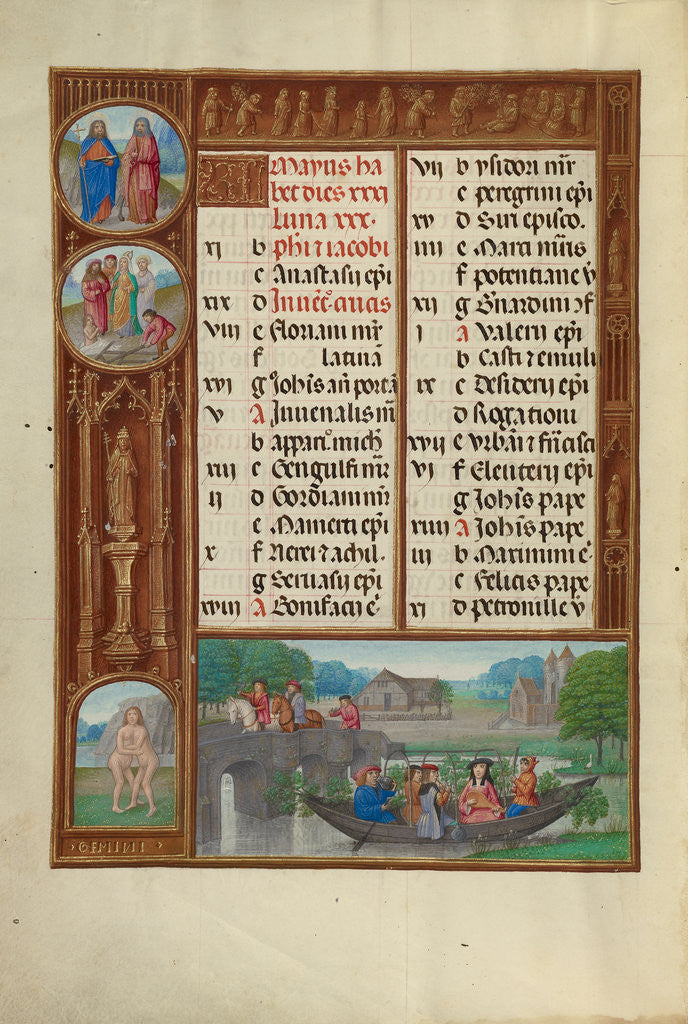 KL Mayus ha
bet dies xxxi
Luna xxx.
xi b phi ⁊ iacobi
c Anastasii epi
xix d Inuēc. crucis
viii e Floriani mr
f latinā
xvi g Johis an portā
v A Iuuenalis m
b apparico mich
xiii c Gengulfi mr
ii d Gordiani mr
e Mamerti epi
x f Nerei ⁊ achil.
g Seruasii epi
xviii A Bonifacii e
vii b ysidori mr
c peregrini epi
xv d Siri episco.
iiii e Marci mris
f potentiane v
xii g Bnardini ꝯf
i A Valerii epi
b Casti ⁊ emili
ix c Desiderii epi
d Rogationi
xvii e Vrbani ⁊ fncisci
vi f Eleuterii epi
g Johis pape
xiiii A Johis pape
iii b Maximini e
c Felicis pape
xi d petronille v
GEMINI